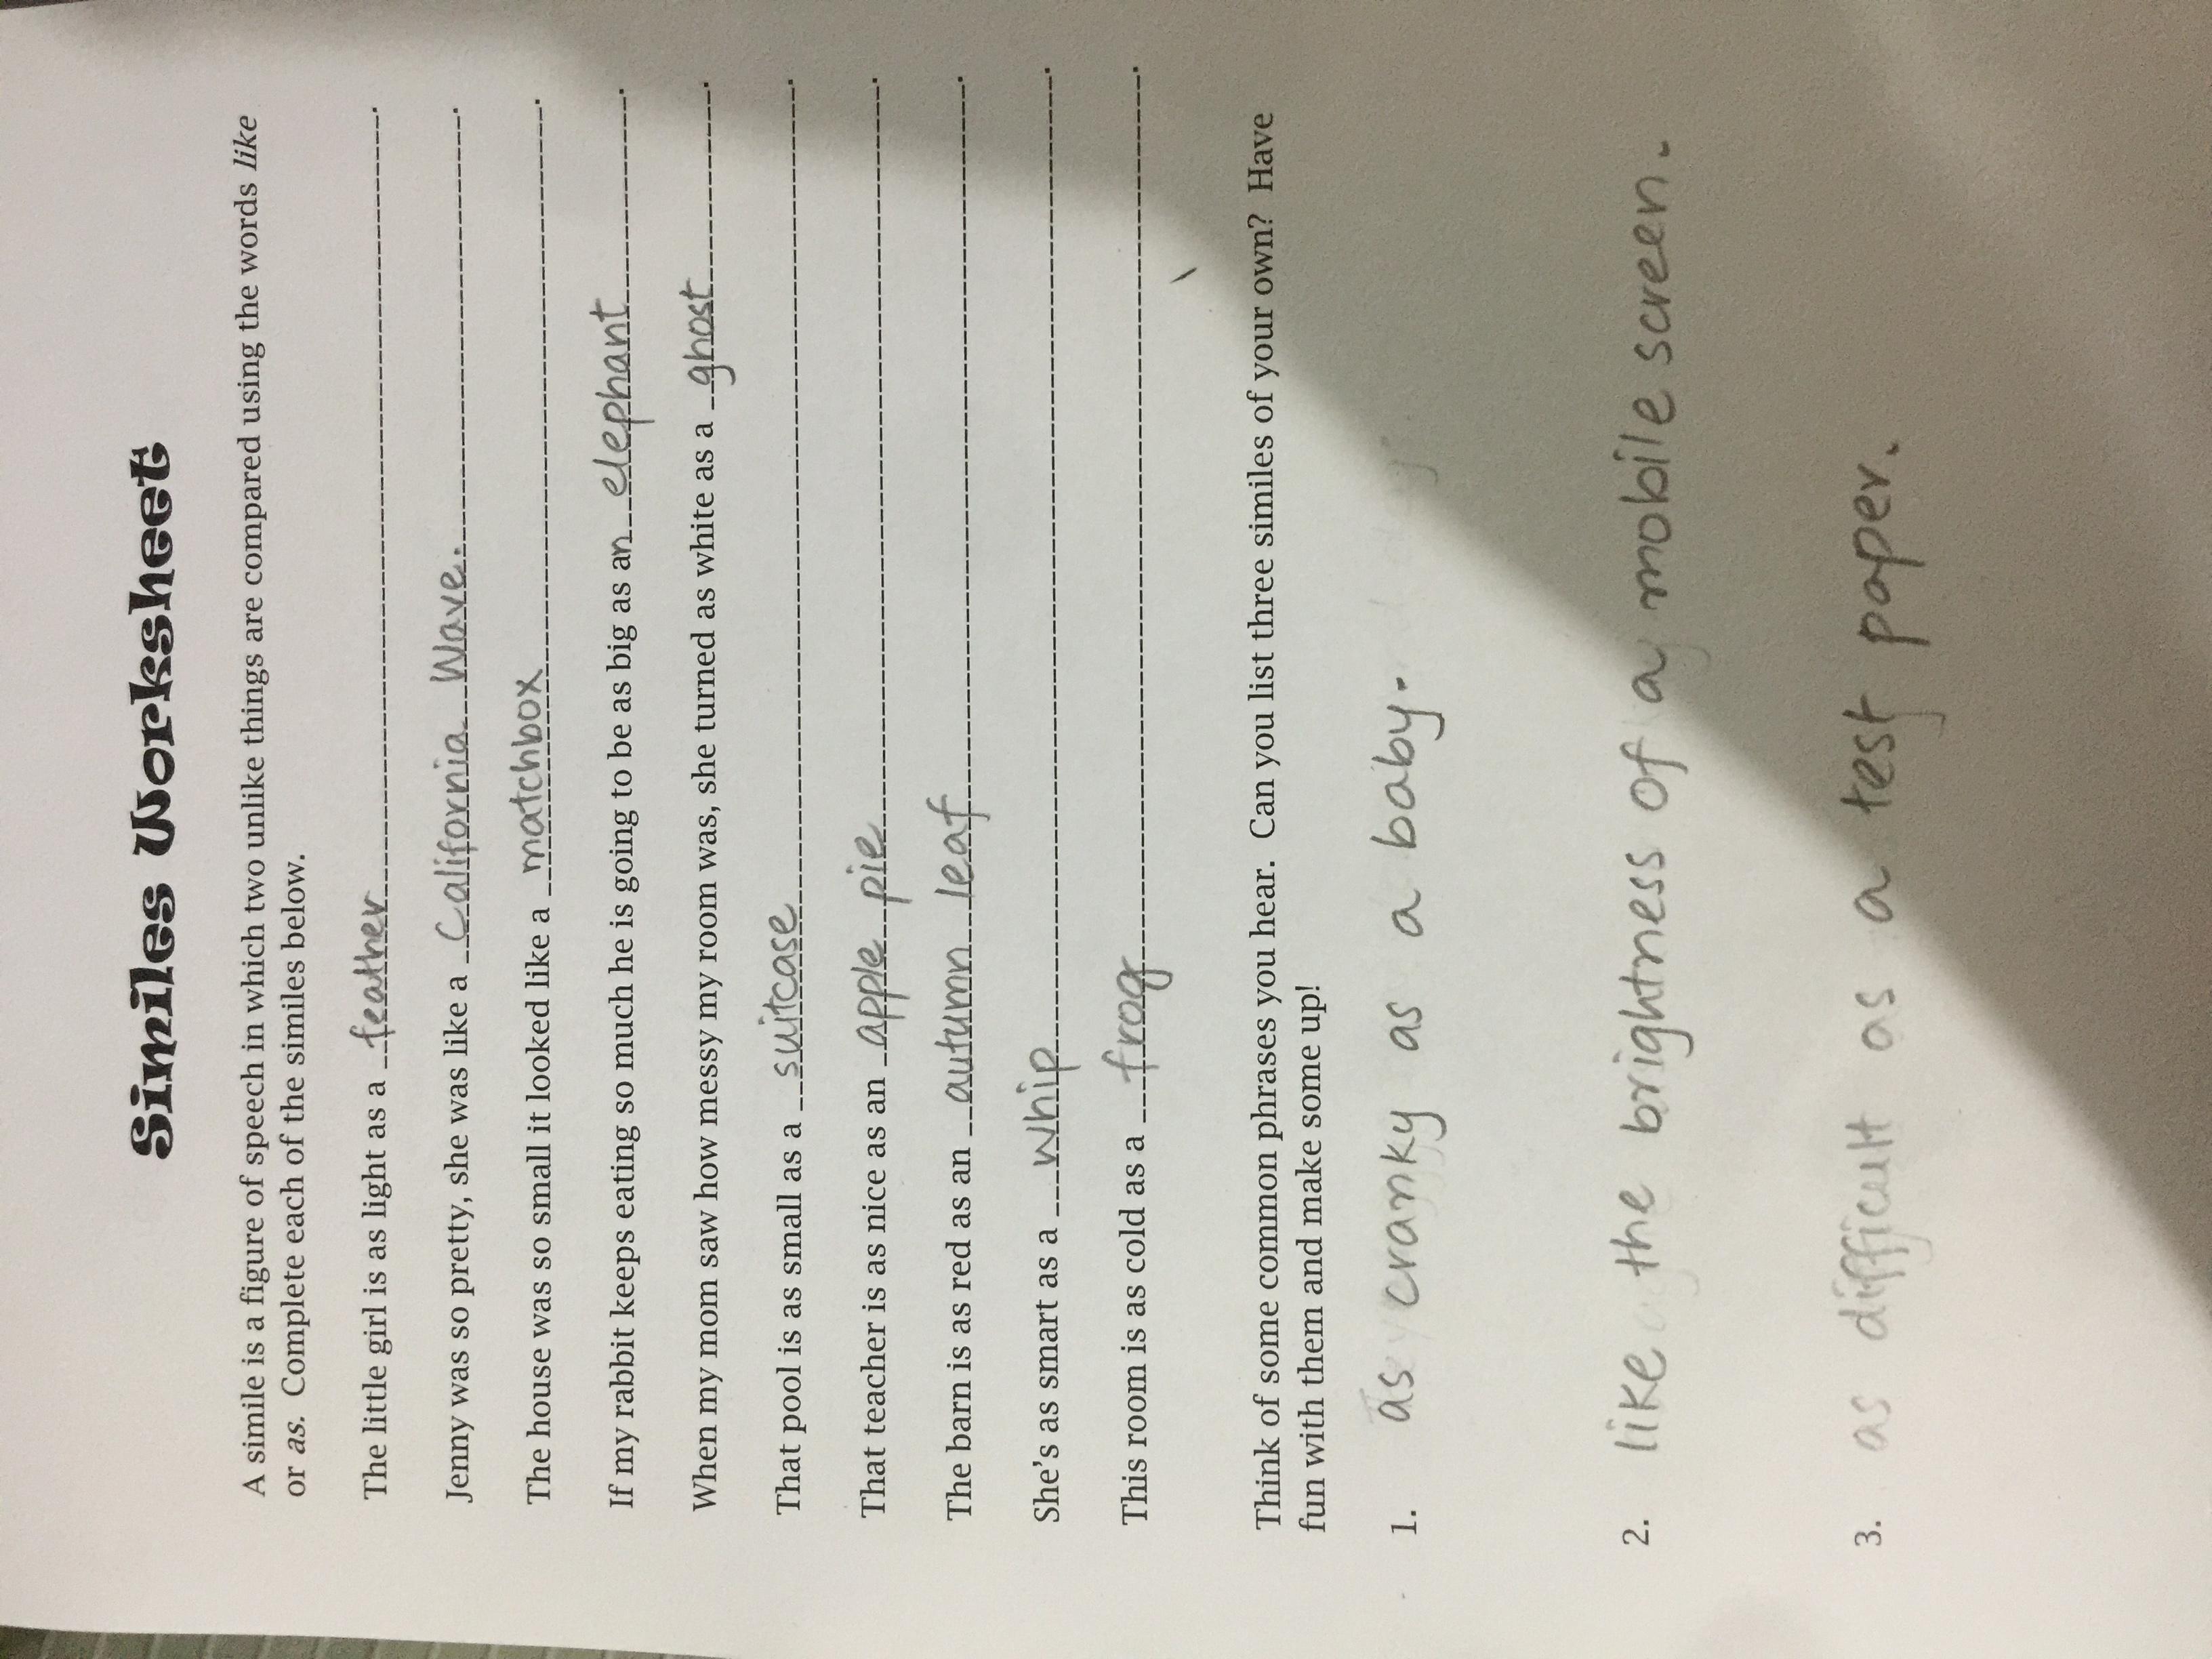 Similes Worksheet
A simile is a figure of speech in which two unlike things are compared using the words like
or as. Complete each of the similes below.
The little girl is as light as a feather.
Jenny was so pretty, she was like a California Wave.
The house was so small it looked like a matchbox.
If my rabbit keeps eating so much he is going to be as big as an elephant.
When my mom saw how messy my room was, she turned as white as a ghost.
That pool is as small as a suitcase.
That teacher is as nice as an apple pie.
The barn is as red as an autumn leaf.
She's as smart as a whip.
This room is as cold as a frog.
Think of some common phrases you hear. Can you list three similes of your own? Have
fun with them and make some up!
1. as cranky as a baby.
2. like the brightness of a mobile screen.
3. as difficult as a test paper.